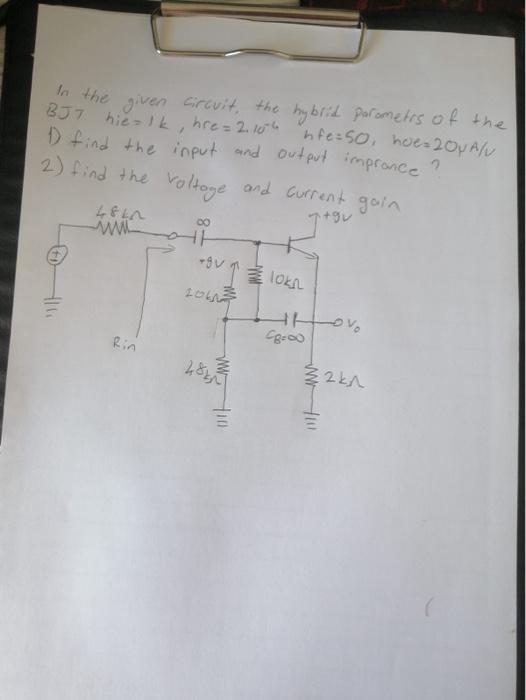 In the given circuit, the hybrid parometrs of the
BJT hie=1k, hre=2.10⁻⁴ hfe=50, hoe=20μA/V
1) find the input and output imprance?
2) find the voltage and current gain
48kΩ
∞
+9V
+9V
10kΩ
20kΩ
Vo
CB=∞
Rin
48kΩ
2kΩ